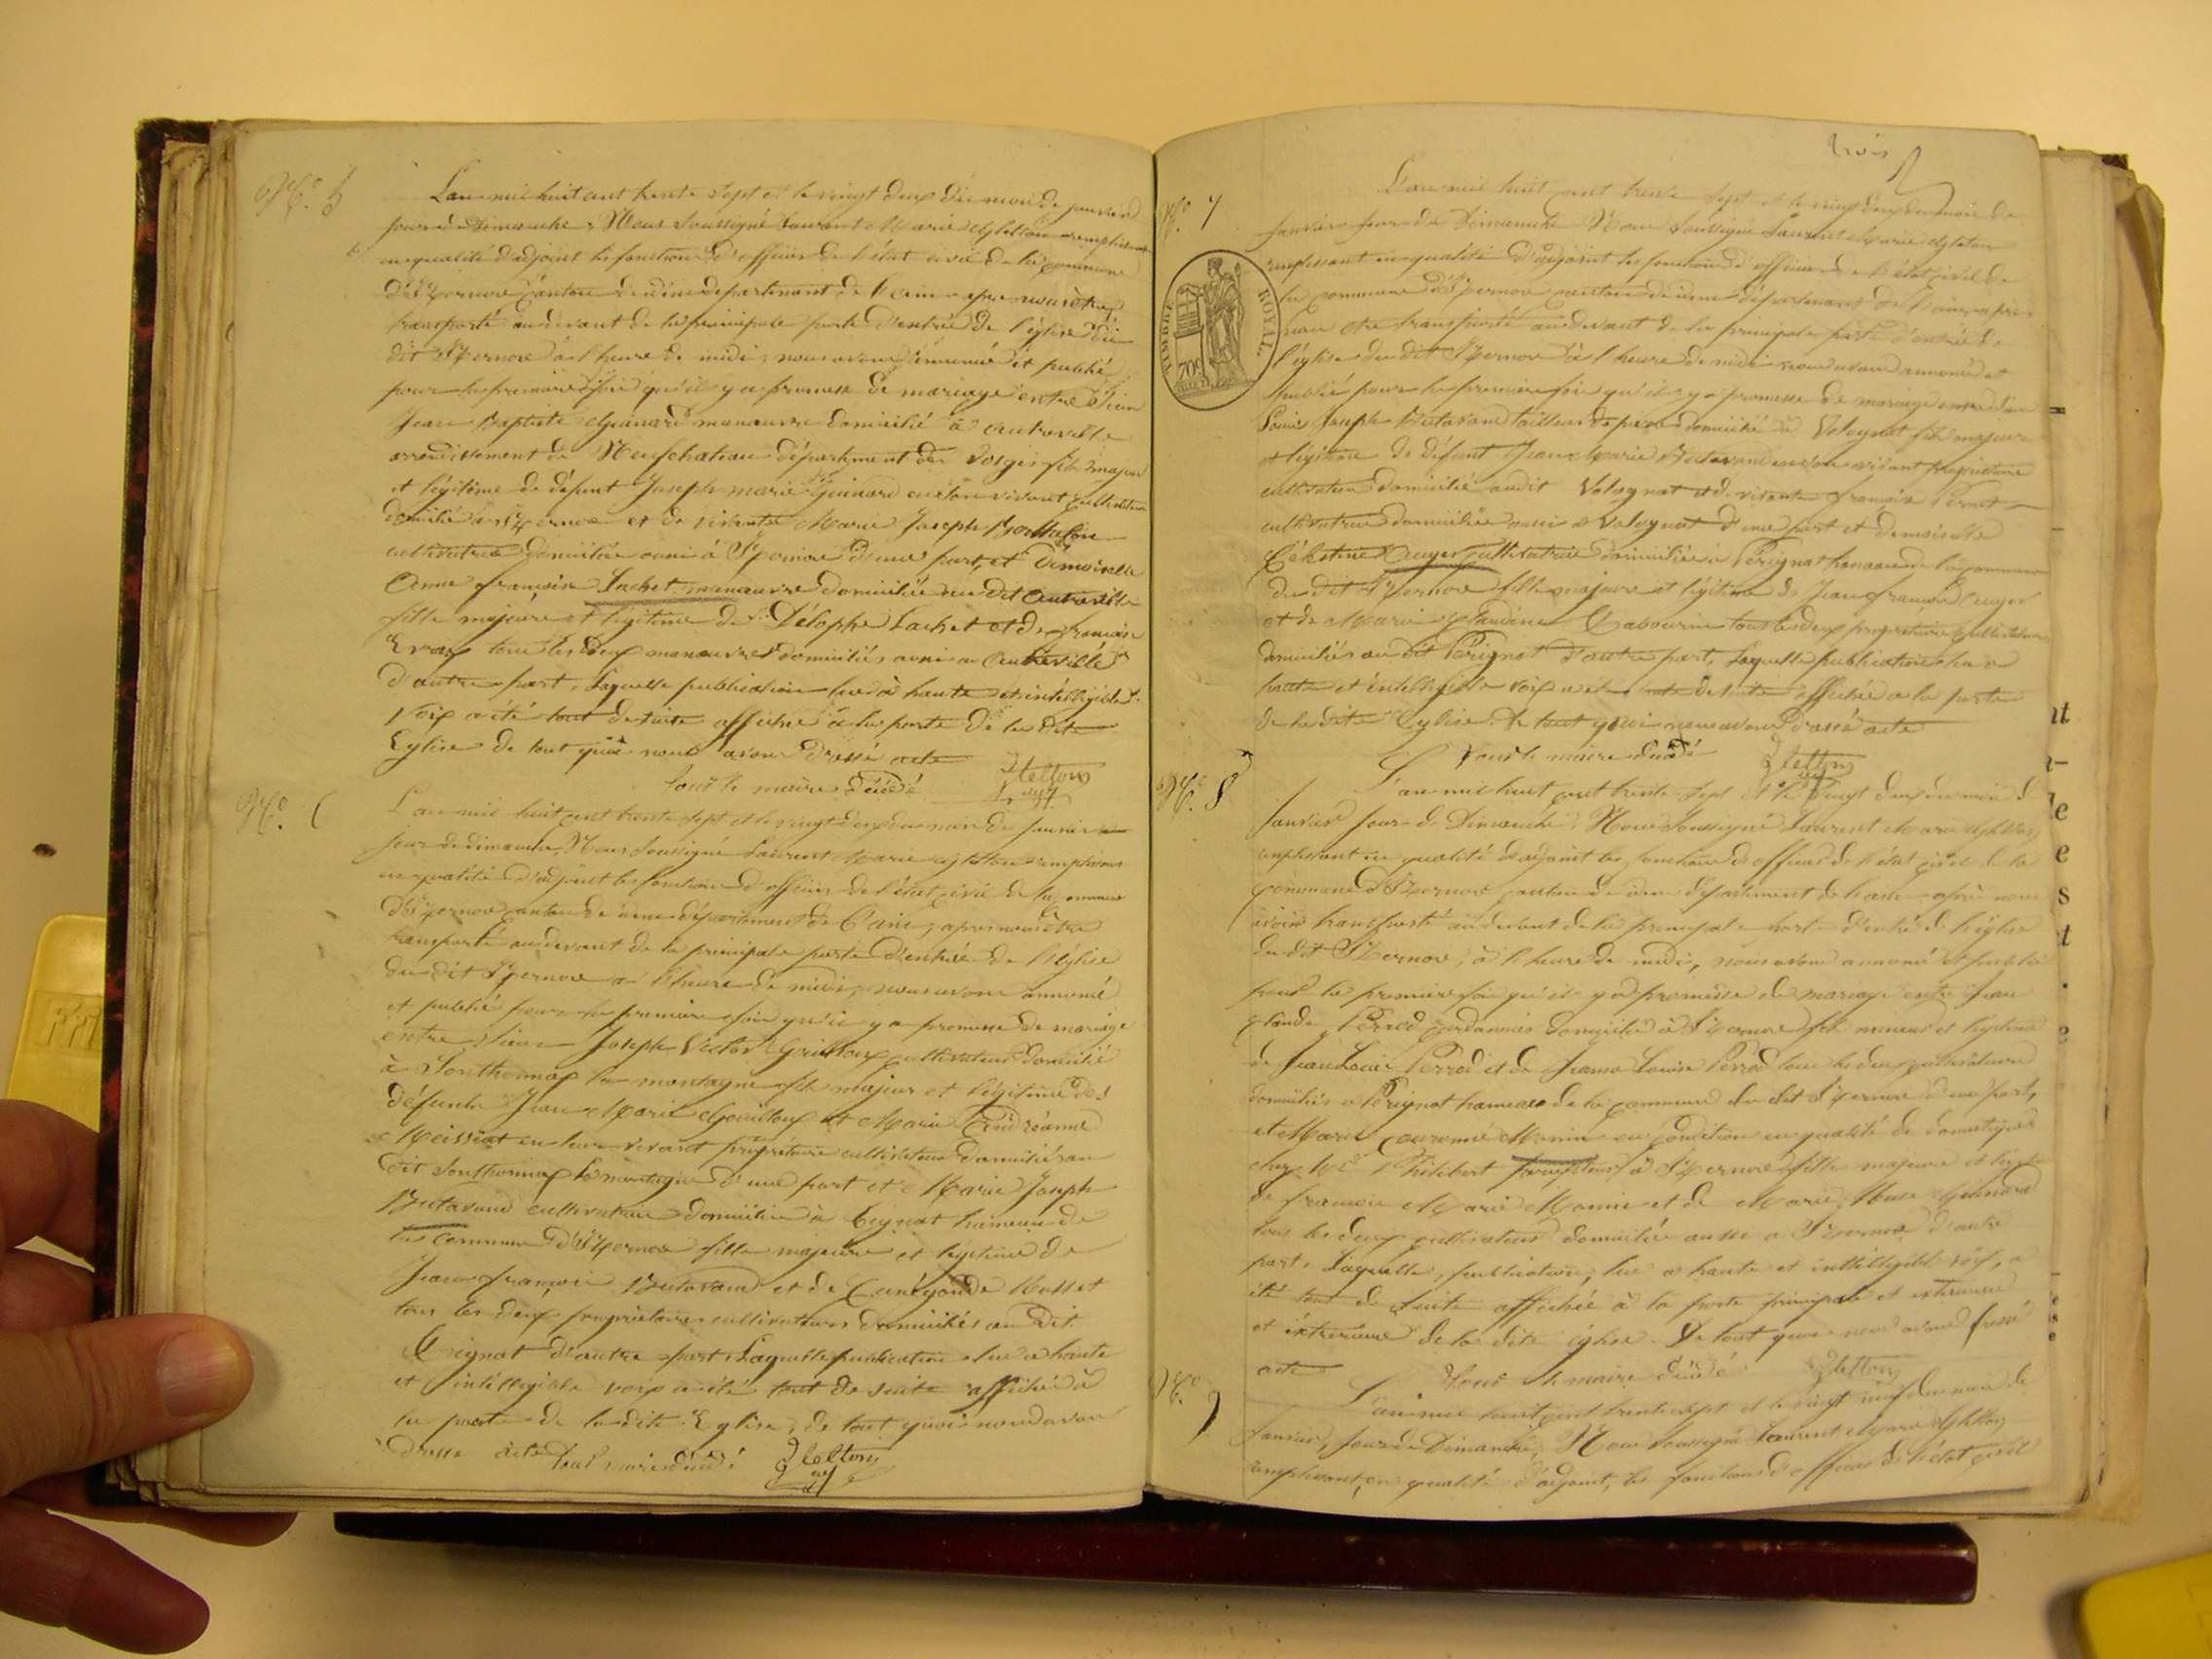 N.º 5
L'an mil huit cent trente sept et le vingt deux du mois de janvier
jour de Dimanche, Nous soussigné Laurent Marie remplissant
en qualité d'adjoint les fonctions d'officier de l'état civil de la commune
d'Izernore canton de idem département de l'ain après nous être
transporté au devant de la principale porte d'entrée de l'église du
dit Izernore à l'heure de midi, nous avons annoncé et publié
pour la première fois qu'il y a promesse de mariage entre Sieur
Jean Baptiste Guinard manœuvre domicilié à autreville
arrondissement de Neufchateau département des Vosges fils majeur
et légitime de défunt Joseph marie Guinard en son vivant cultivateur
domicilié à Izernore et de vivante Marie Joseph
cultivatrice domiciliée aussi à Izernore d'une part, et Demoiselle
Anne françoise Lachet manœuvre domiciliée au dit autreville
fille majeure et légitime de Délophe Lachet et de françoise
tous les deux manœuvres domiciliés aussi au autreville
d'autre part, Laquelle publication lue à haute et intelligible
voix a été tout de suite affichée à la porte de la dite
Eglise de tout quoi nous avons dressé acte
Pour le maire décédé
N.º 6
L'an mil huit cent trente sept et le vingt deux du mois de Janvier
jour de dimanche, Nous soussigné Laurent Marie remplissant
en qualité d'adjoint les fonctions d'officier de l'état civil de la commune
d'Izernore canton de idem département de l'ain, après nous être
transporté au devant de la principale porte d'entrée de l'église
du dit Izernore à l'heure de midi, nous avons annoncé
et publié pour la première fois qu'il y a promesse de mariage
entre Sieur Joseph Victor Gouilloux cultivateur domicilié
à Sonthonnax la montagne fils majeur et légitime des
défunts Jean Marie Gouilloux et Marie Andréanne
Meissiat en leur vivant propriétaire cultivateur domiciliés au
dit Sonthonnax la montagne d'une part et Marie Joseph
Butavand cultivatrice domiciliée à Ceignat hameau de
la commune d'Izernore fille majeure et légitime de
Jean françois Butavand et de Cunégonde
tous les deux propriétaires cultivateurs domiciliés au dit
Ceignat d'autre part Laquelle publication lue à haute
et intelligible voix a été tout de suite affichée à
la porte de la dite Eglise, de tout quoi nous avons
dressé acte Pour le maire décédé
trois
N.º 7
L'an mil huit cent trente sept et le vingt deux du mois de
Janvier jour de Dimanche Nous soussigné Laurent Marie
remplissant en qualité d'adjoint les fonctions d'officier de l'état civil de
la commune d'Izernore canton de idem département de l'ain, après
nous être transporté au devant de la principale porte d'entrée de
l'église du dit Izernore à l'heure de midi nous avons annoncé et
publié pour la première fois qu'il y a promesse de mariage entre Sieur
Louis Joseph Butavand tailleur de pierre domicilié à Volognat fils majeur
et légitime de défunt Jean Marie Butavand en son vivant propriétaire
cultivateur domicilié audit Volognat et de vivante françoise
cultivatrice domiciliée aussi à Volognat d'une part et demoiselle
Célestine Auger cultivatrice domiciliée à Pérignat hameau de la commune
du dit Izernore fille majeure et légitime de Jean françois Auger
et de Marie Claudine tous les deux propriétaires cultivateurs
domiciliés au dit Pérignat d'autre part, Laquelle publication lue à
haute et intelligible voix a été tout de suite affichée à la porte
de la dite Eglise. De tout quoi nous avons dressé acte
Pour le maire décédé
TIMBRE ROYAL
70c
N.º 8
L'an mil huit cent trente sept et le vingt deux du mois de
Janvier jour de Dimanche, Nous soussigné Laurent Marie
remplissant en qualité d'adjoint les fonctions d'officier de l'état civil de la
commune d'Izernore canton de idem département de l'ain après nous
avoir transporté au devant de la principale porte d'entrée de l'église
du dit Izernore, à l'heure de midi, nous avons annoncé et publié
pour la première fois qu'il y a promesse de mariage entre Jean
Claude Perrod cordonnier domicilié à Izernore fils mineur et légitime
de Jean Louis Perrod et de Jeanne Louise Perrod tous les deux cultivateurs
domiciliés à Pérignat hameau de la commune du dit Izernore d'une part,
et Marie Monin en condition en qualité de domestique
chez Philibert à Izernore fille majeure et légitime
de françois Marie Monin et de Marie Guinard
tous les deux cultivateurs domiciliés aussi à Izernore d'autre
part, Laquelle publication, lue à haute et intelligible voix, a
été tout de suite affichée à la porte principale et extérieure
et extérieure de la dite église. De tout quoi nous avons dressé
acte Pour le maire décédé
N.º 9
L'an mil huit cent trente sept et le vingt neuf du mois de
Janvier, jour de Dimanche, Nous soussigné Laurent Marie
remplissant, en qualité d'adjoint, les fonctions d'officier de l'état civil